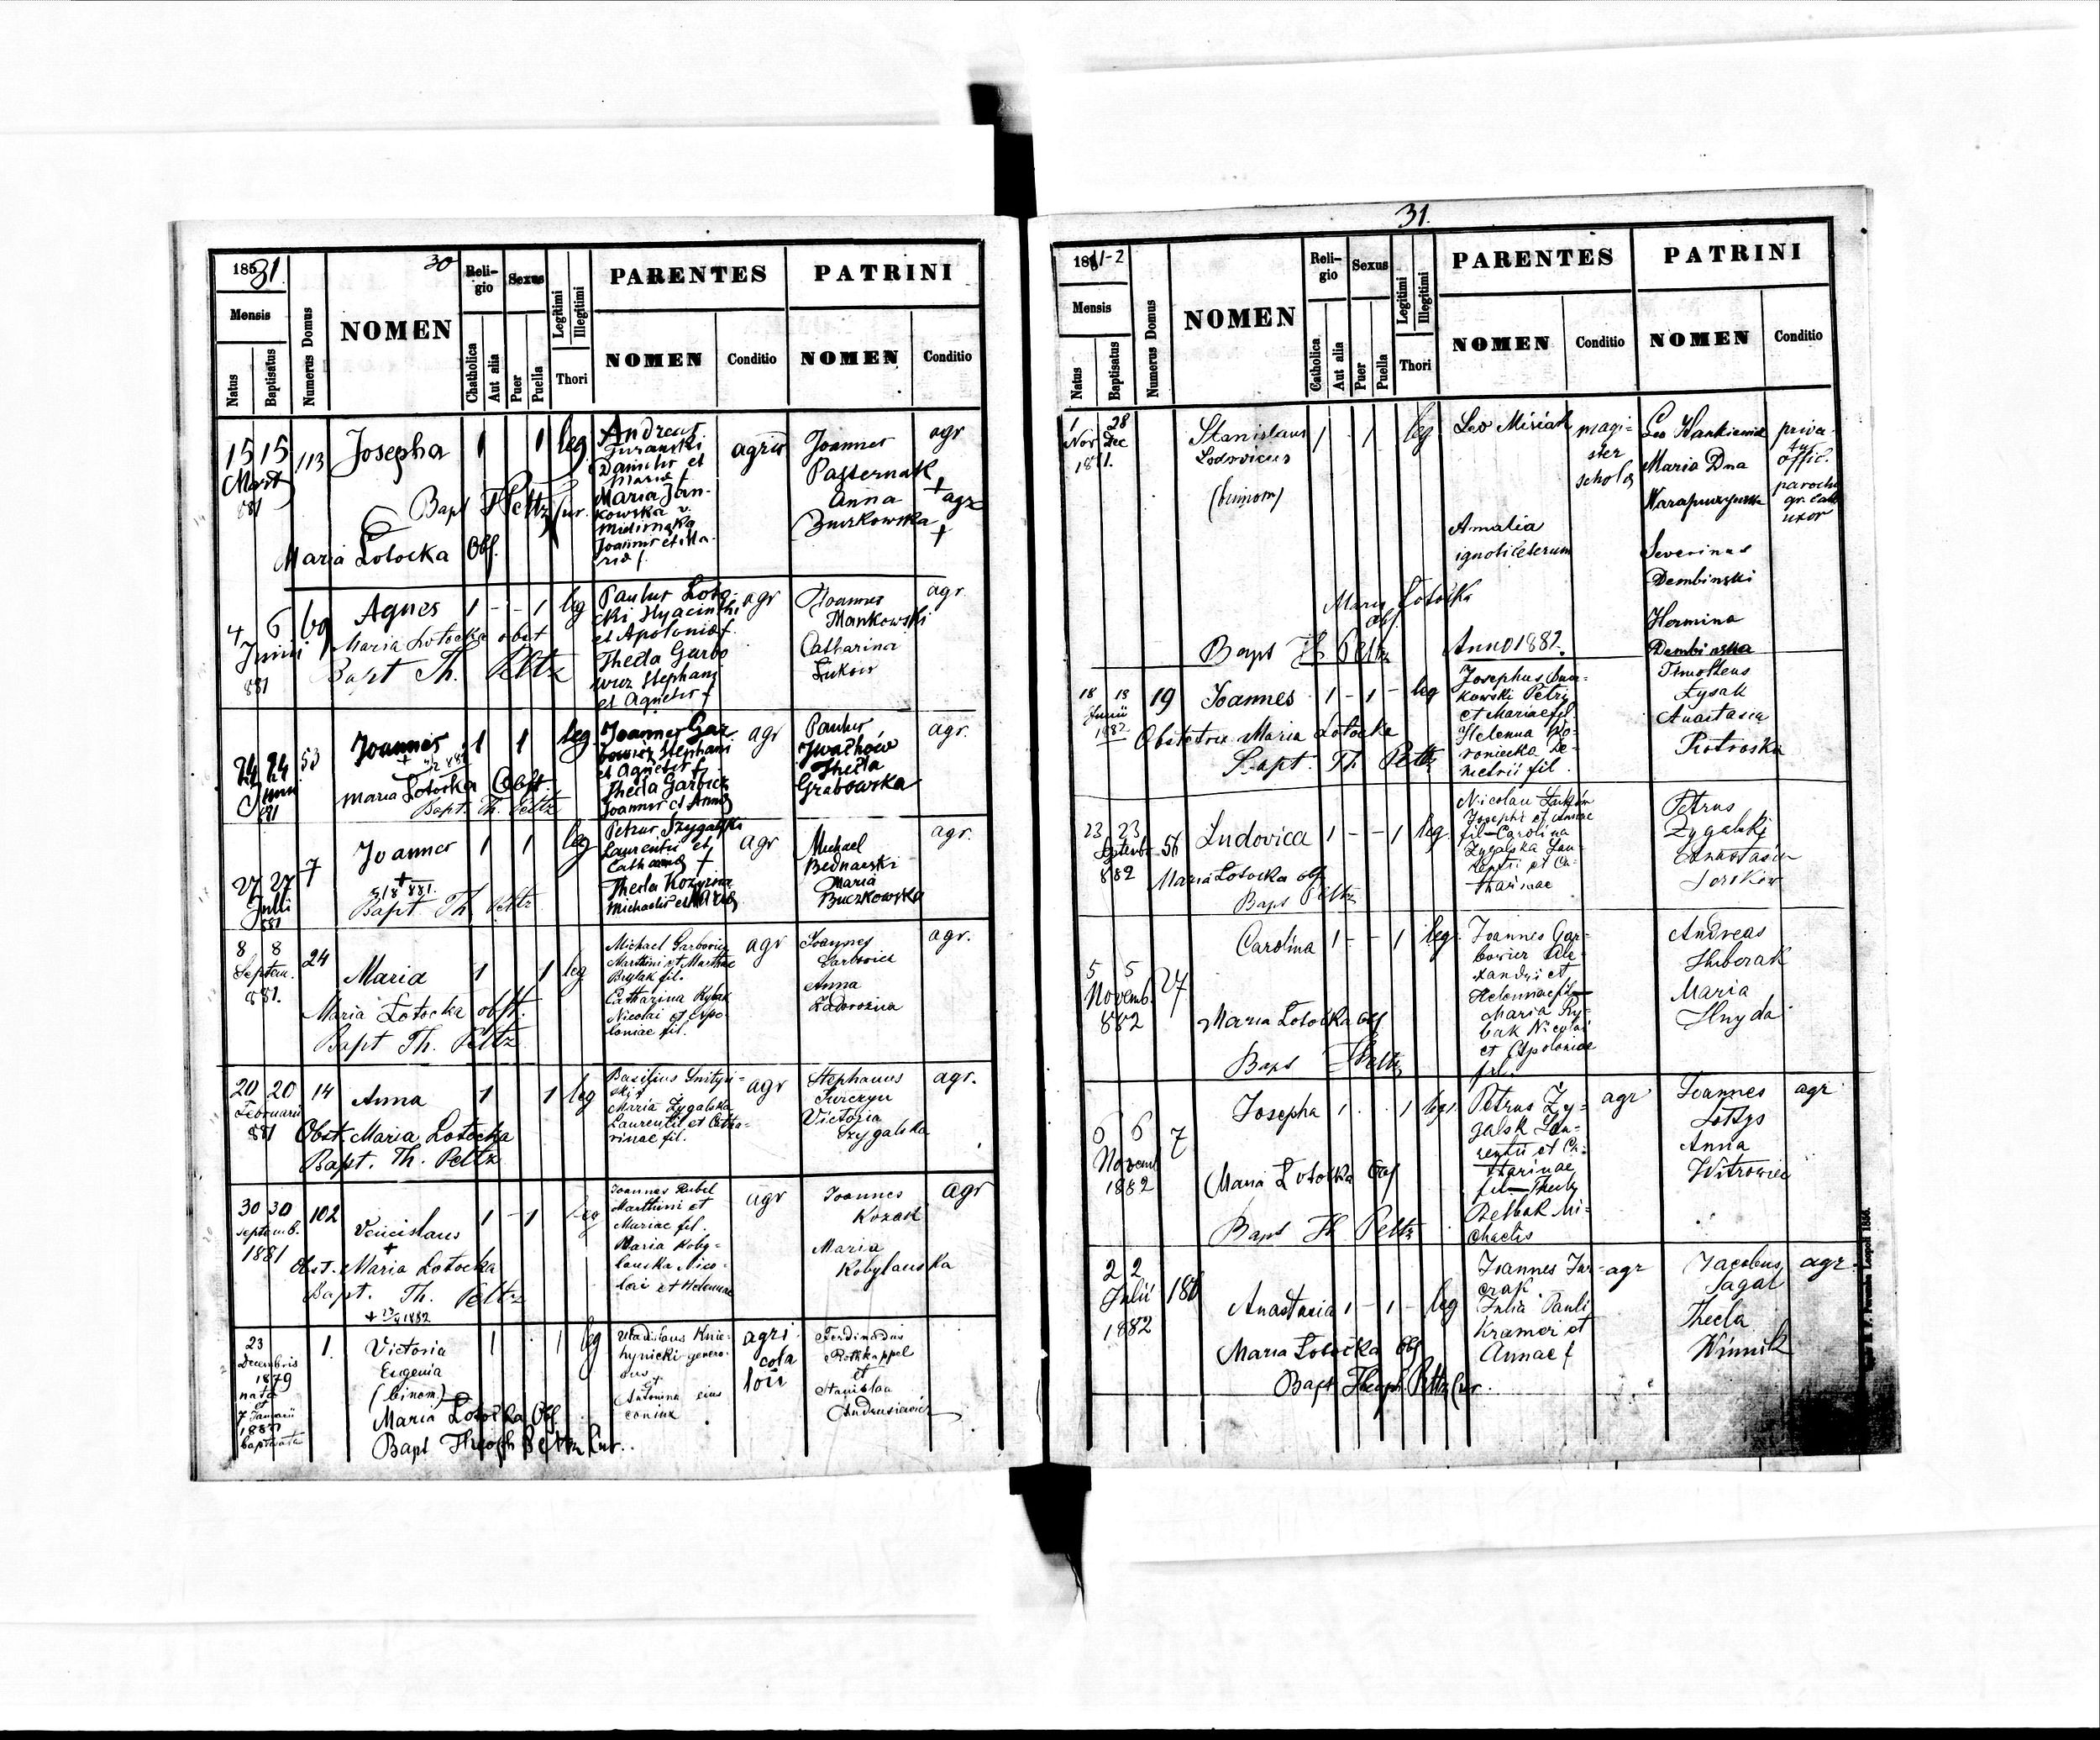 30
1881
Mensis
Natus
Baptisatus
Numerus Domus
NOMEN
Reli-
gio
Chatholica
Aut alia
Sexus
Puer
Puella
Legitimi
Illegitimi
Thori
PARENTES
NOMEN
Conditio
PATRINI
NOMEN
Conditio
15 15 113 Josepha 1 1 leg
Mart
881
Bapt Th Peltz Cur.
Maria Lotocka Obs.
Andreas
Danielis et
Maria
Maria Jan-
kowska v.
Joannis et Ma-
agric
Joannes
Pasternak
Anna
Buczkowska
agr
+ agr
+
4 6 69 Agnes 1 - - 1 leg
Junii
881
Maria Lotocka obst
Bapt Th. Peltz
Paulus Loto-
cki Hyacinthi
et Apoloniae f.
Thecla Garbo
wicz Stephani
et Agnetis f
agr
Joannes
Mankowski
Catharina
Lukow
agr.
24 24 53 Joannes 1 1 leg
Junii
881
Maria Lotocka Obst.
Bapt. Th. Peltz
Joannes Gar
bowicz Stephani
et Agnetis f
Thecla Garbicz
Joannis et Annae
agr
Paulus
Iwachow
Thecla
Grabowska
agr.
27 27 7 Joannes 1 1 leg
Julii
881
+
5/8 881.
Bapt Th. Peltz
Petrus Szygalski
Laurentii et
Cath +
Thecla
Michaelis et
agr
Michael
Bednarski
Maria
Buczkowska
agr.
8 8 24 Maria 1 1 leg
Septem.
881.
Maria Lotocka obst.
Bapt Th. Peltz
Michael Garbowicz
Marthini et Marthae
Brylak fil.
Catharina Rybak
Nicolai et Apo-
loniae fil.
agr
Joannes
Garbowicz
Anna
Zadorozna
agr.
20 20 14 Anna 1 1 leg
Februarii
881
Obst. Maria Lotocka
Bapt. Th. Peltz
Basilius
Maria Zygalska
Laurentii et Catha-
rinae fil.
agr
Stephanus
Jurczyn
Victoria
Szygalska
agr.
30 30 102 Venceslaus 1 - 1 leg
Septemb.
1881
+
Obst. Maria Lotocka
Bapt. Th. Peltz
Joannes Rubel
Marthini et
Mariae fil.
Maria Koby-
lanska Nico-
lai et Helenae
agr
Joannes
Kozak
Maria
Kobylanska
agr
23
Decembris
1879
nata
et
7 Januarii
baptisata
1. Victoria 1 . 1 leg
Eugenia
(binom)
Maria Lotocka Obs.
Bapt Theoph Peltz Cur.
Wladislaus Knie-
hynicki genero-
sus et
Antonina eius
conjux
agri
cola
loci
Ferdinadus
Rothkappel
et
Stanislaa
Andrusiewicz
31.
1881-2
Mensis
Natus
Baptisatus
Numerus Domus
NOMEN
Reli-
gio
Catholica
Aut alia
Sexus
Puer
Puella
Legitimi
Illegitimi
Thori
PARENTES
NOMEN
Conditio
PATRINI
NOMEN
Conditio
1 28
Nov Dec
1881.
Stanislaus 1 . 1 leg
Lodovicus
(binom)
Maria Lotocka
obs.
Bapt Th Peltz
Leo Misiak
Amalia
ignoti ceterum
magi-
ster
schola
Leo Hankiewicz
Maria Dna
Severinus
Dembinski
Hermina
Dembinska
priva-
offic.
parochi
gr. cath
uxor
Anno 1882.
18 18 19 Joannes 1 - 1 - leg
Junii
1882
Obstetrix Maria Lotocka
Bapt. Th Peltz
Josephus
kowski Petri
et Mariae fil.
Helenna Wo-
roniecka De-
metrii fil.
Timotheus
Lysak
Anastasia
Piotroska
23 23 56 Ludovica 1 - - 1 leg.
Septemb.
882
Maria Lotocka obs
Bapt Peltz
Nicolau
Josephi et Annae
fil - Carolina
Zygalska Lau-
rentii et Ca-
tharinae
Petrus
Zygalski
Anastasia
5 5 27 Carolina 1 - - 1 leg.
Novemb.
882
Maria Lotocka obs
Bapt Th Peltz
Joannes Gar-
bowicz Ale-
xandri et
Helennae fil -
Maria Ry-
bak Nicolai
et Apoloniae
fil.
Andreas
Huberak
Maria
Hnyda
6 6 7 Josepha 1 . . 1 leg.
Novemb
1882
Maria Lotocka Obs
Bapt Th Peltz
Petrus Zy-
galsk Lau-
rentii et Ca-
tharinae
fil - Thecla
Belbak Mi-
chaelis
agr
Joannes
Lotsys
Anna
Witrowicz
agr
2 2 180 Anastasia 1 - 1 - leg
Julii
1882
Maria Lotocka Obs
Bapt Theoph. Peltz Cur.
Joannes Jur-
czak
Julia Pauli
Kramer et
Annae f
agr
Jacobus
Jagal
Thecla
Winnik
agr.